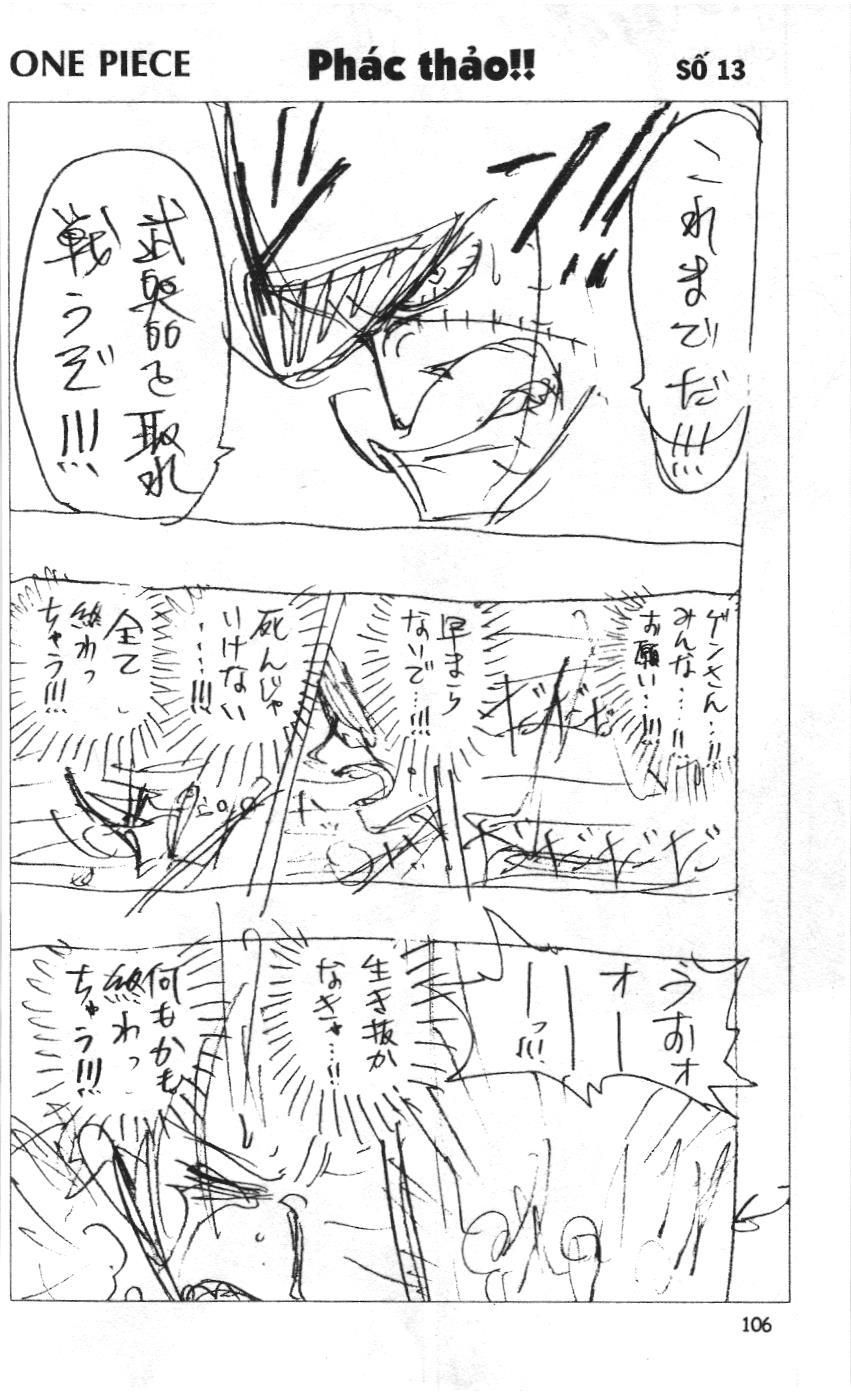 ONE PIECE
Phác thảo!!
Số 13
これまでだ!!!
武器を取れ
戦うぞ!!!
ゲンさん…!!
みんな…!!
お願い…!!!
早まら
ないで…!!!
死んじゃ
いけない
…!!!
全て
終わっ
ちゃう!!!
ギギギ
ギギギギ
うおオ
オー
ー
ーっ!!!
生き抜か
なきゃ…!!
何もかも
終わっ
ちゃう!!!
106